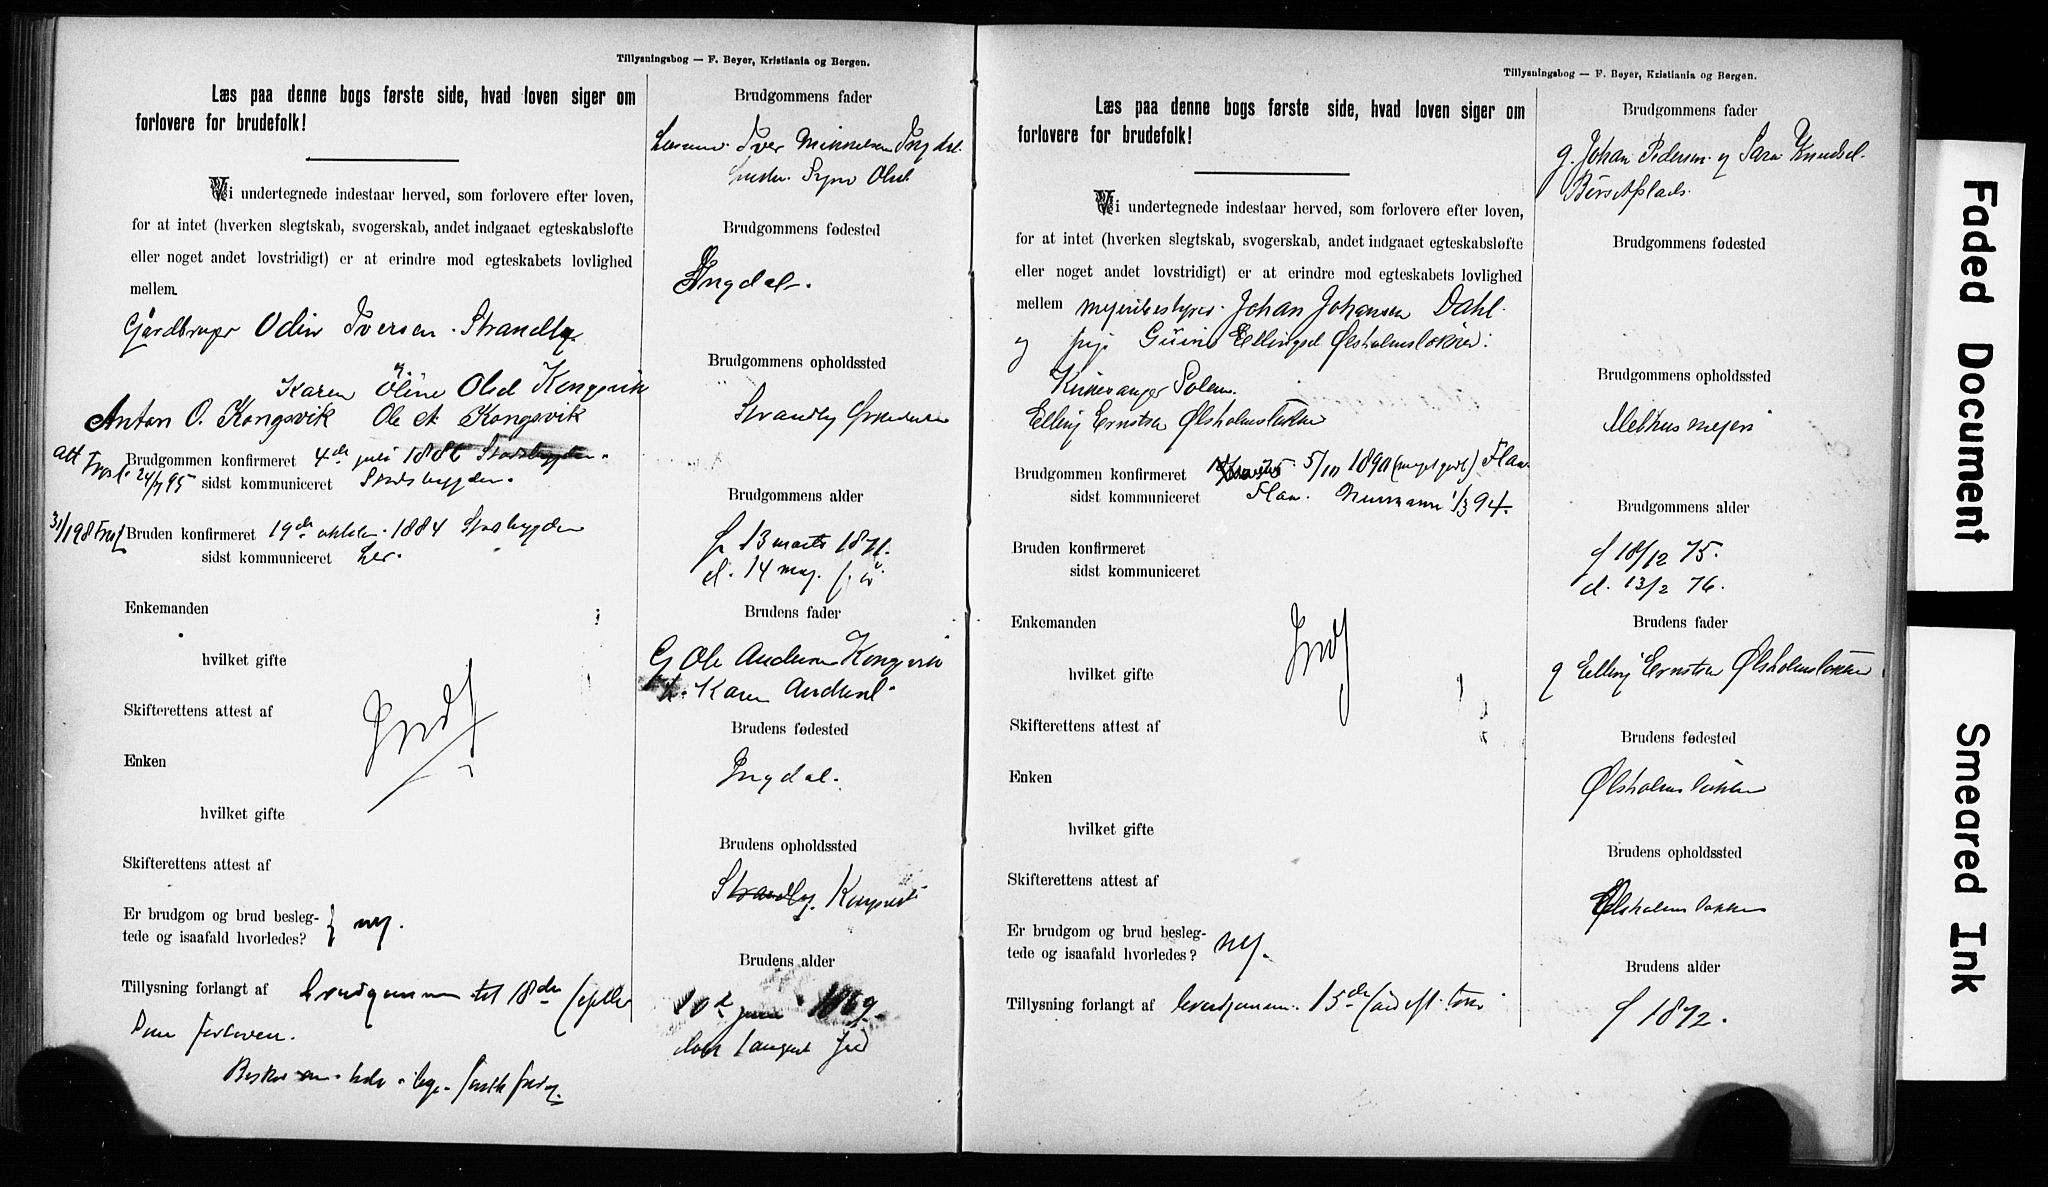 Tillysningsbog — F. Beyer, Kristiania og Bergen.
Læs paa denne bogs første side, hvad loven siger om
forlovere for brudefolk!
Vi undertegnede indestaar herved, som forlovere efter loven,
for at intet (hverken slegtskab, svogerskab, andet indgaaet egteskabsløfte
eller noget andet lovstridigt) er at erindre mod egteskabets lovlighed
mellem
Gårdbruger Odin Iversen Strandby
Karen Oline Olsd Kongsvik
Anton O. Kongsvik Ole A Kongsvik
Att
Brudgommen konfirmeret 4de juli 1886 Stadsbygden
24/7 95 sidst kommuniceret Stadsbygden.
31/1 98 Bruden konfirmeret 19de oktober 1884 Stadsbygden
sidst kommuniceret her.
Enkemanden
hvilket gifte
Skifterettens attest af
Indf
Enken
hvilket gifte
Skifterettens attest af
Er brudgom og brud beslegtede og isaafald hvorledes? nej.
Tillysning forlangt af brudgommen til 18de
forloveren.
Brudgommens fader
Iver Mikkelsen Ingdal
Olsd
Brudgommens fødested
Ingdal.
Brudgommens opholdssted
Strandby
Brudgommens alder
f 13 marts 1871.
d. 14 maj
Brudens fader
G Ole Andersen Kongsvik
h. Karen Andersd.
Brudens fødested
Ingdal.
Brudens opholdssted
Strandby. Kongsvik
Brudens alder
10d juni 1869
døbt 1 august
Tillysningsbog — F. Beyer, Kristiania og Bergen.
Læs paa denne bogs første side, hvad loven siger om
forlovere for brudefolk!
Vi undertegnede indestaar herved, som forlovere efter loven,
for at intet (hverken slegtskab, svogerskab, andet indgaaet egteskabsløfte
eller noget andet lovstridigt) er at erindre mod egteskabets lovlighed
mellem mejeribestyrer Johan Johansen Dahl.
og pige Ellingsd Ølsholmsløkken.
Elling Ernstsen Ølsholmsløkken
Brudgommen konfirmeret 5/10 1890 (meget godt) Flaa
sidst kommuniceret Flaa. 1/3 94.
Bruden konfirmeret
sidst kommuniceret
Enkemanden
hvilket gifte
Indf
Skifterettens attest af
Enken
hvilket gifte
Skifterettens attest af
Er brudgom og brud beslegtede og isaafald hvorledes? nej.
Tillysning forlangt af brudgommen. 15de
Brudgommens fader
g. Johan Pedersen og Sara Knudsd.
Børsetplads.
Brudgommens fødested
Brudgommens opholdssted
Melhus mejeri
Brudgommens alder
f 18/12 75.
d. 13/2 76.
Brudens fader
g Elling Ernstsen Ølsholmsløkken
Brudens fødested
Ølsholmsløkken
Brudens opholdssted
Ølsholmsløkken
Brudens alder
f 1872.
Faded Document
Smeared Ink